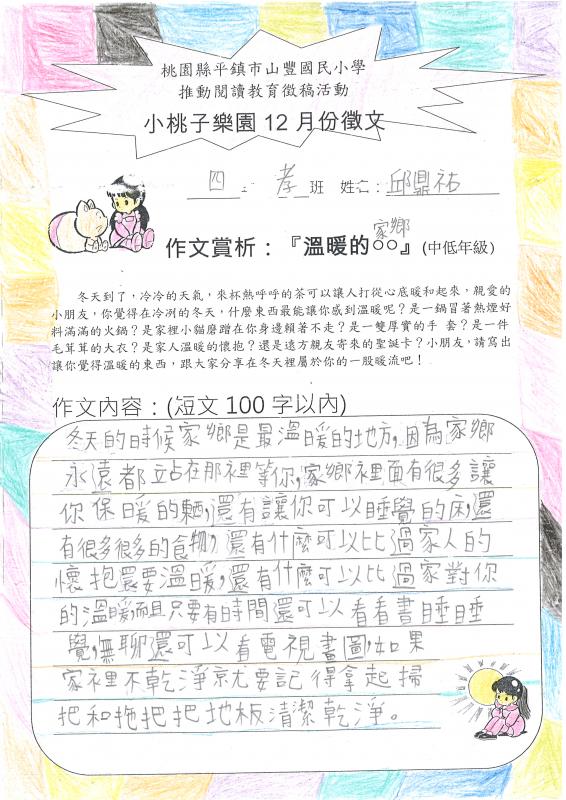 桃園縣平鎮市山豐國民小學
推動閱讀教育徵稿活動
小桃子樂園 12 月份徵文
四 年 孝 班 姓名:邱鼎祐
作文賞析：『溫暖的○○』(中低年級)
家鄉
冬天到了，冷冷的天氣，來杯熱呼呼的茶可以讓人打從心底暖和起來，親愛的
小朋友，你覺得在冷冽的冬天，什麼東西最能讓你感到溫暖呢？是一鍋冒著熱煙好
料滿滿的火鍋？是家裡小貓磨蹭在你身邊賴著不走？是一雙厚實的手 套？是一件
毛茸茸的大衣？是家人溫暖的懷抱？還是遠方親友寄來的聖誕卡？小朋友，請寫出
讓你覺得溫暖的東西，跟大家分享在冬天裡屬於你的一股暖流吧！
作文內容：(短文 100 字以內)
冬天的時候家鄉是最溫暖的地方，因為家鄉
永遠都立占在那裡等你，家鄉裡面有很多讓
你保暖的輛，還有讓你可以睡覺的床，還
有很多很多的食物，還有什麼可以比過家人的
懷抱還要溫暖，還有什麼可以比過家對你
的溫暖而且只要有時間還可以看看書睡睡
覺，無聊還可以看電視畫圖，如果
家裡不乾淨就要記得拿起掃
把和拖把把地板清潔乾淨。